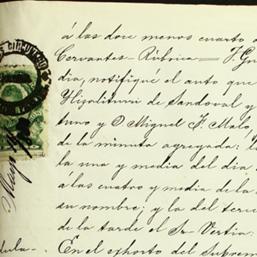 á las doce menos cuarto a
Cervantes - Rúbrica - J. Gu
dia, notifiqué el auto que
Hipolitum de Sandoval y
tuno y D Miguel F. Malo,
de la minuta agregada:
la una y media del dia
á las cuatro y media de la
su nombre; y la del terc
de la tarde el Sr Vertia:
dula- En el exhorto del Suprem
Mayo